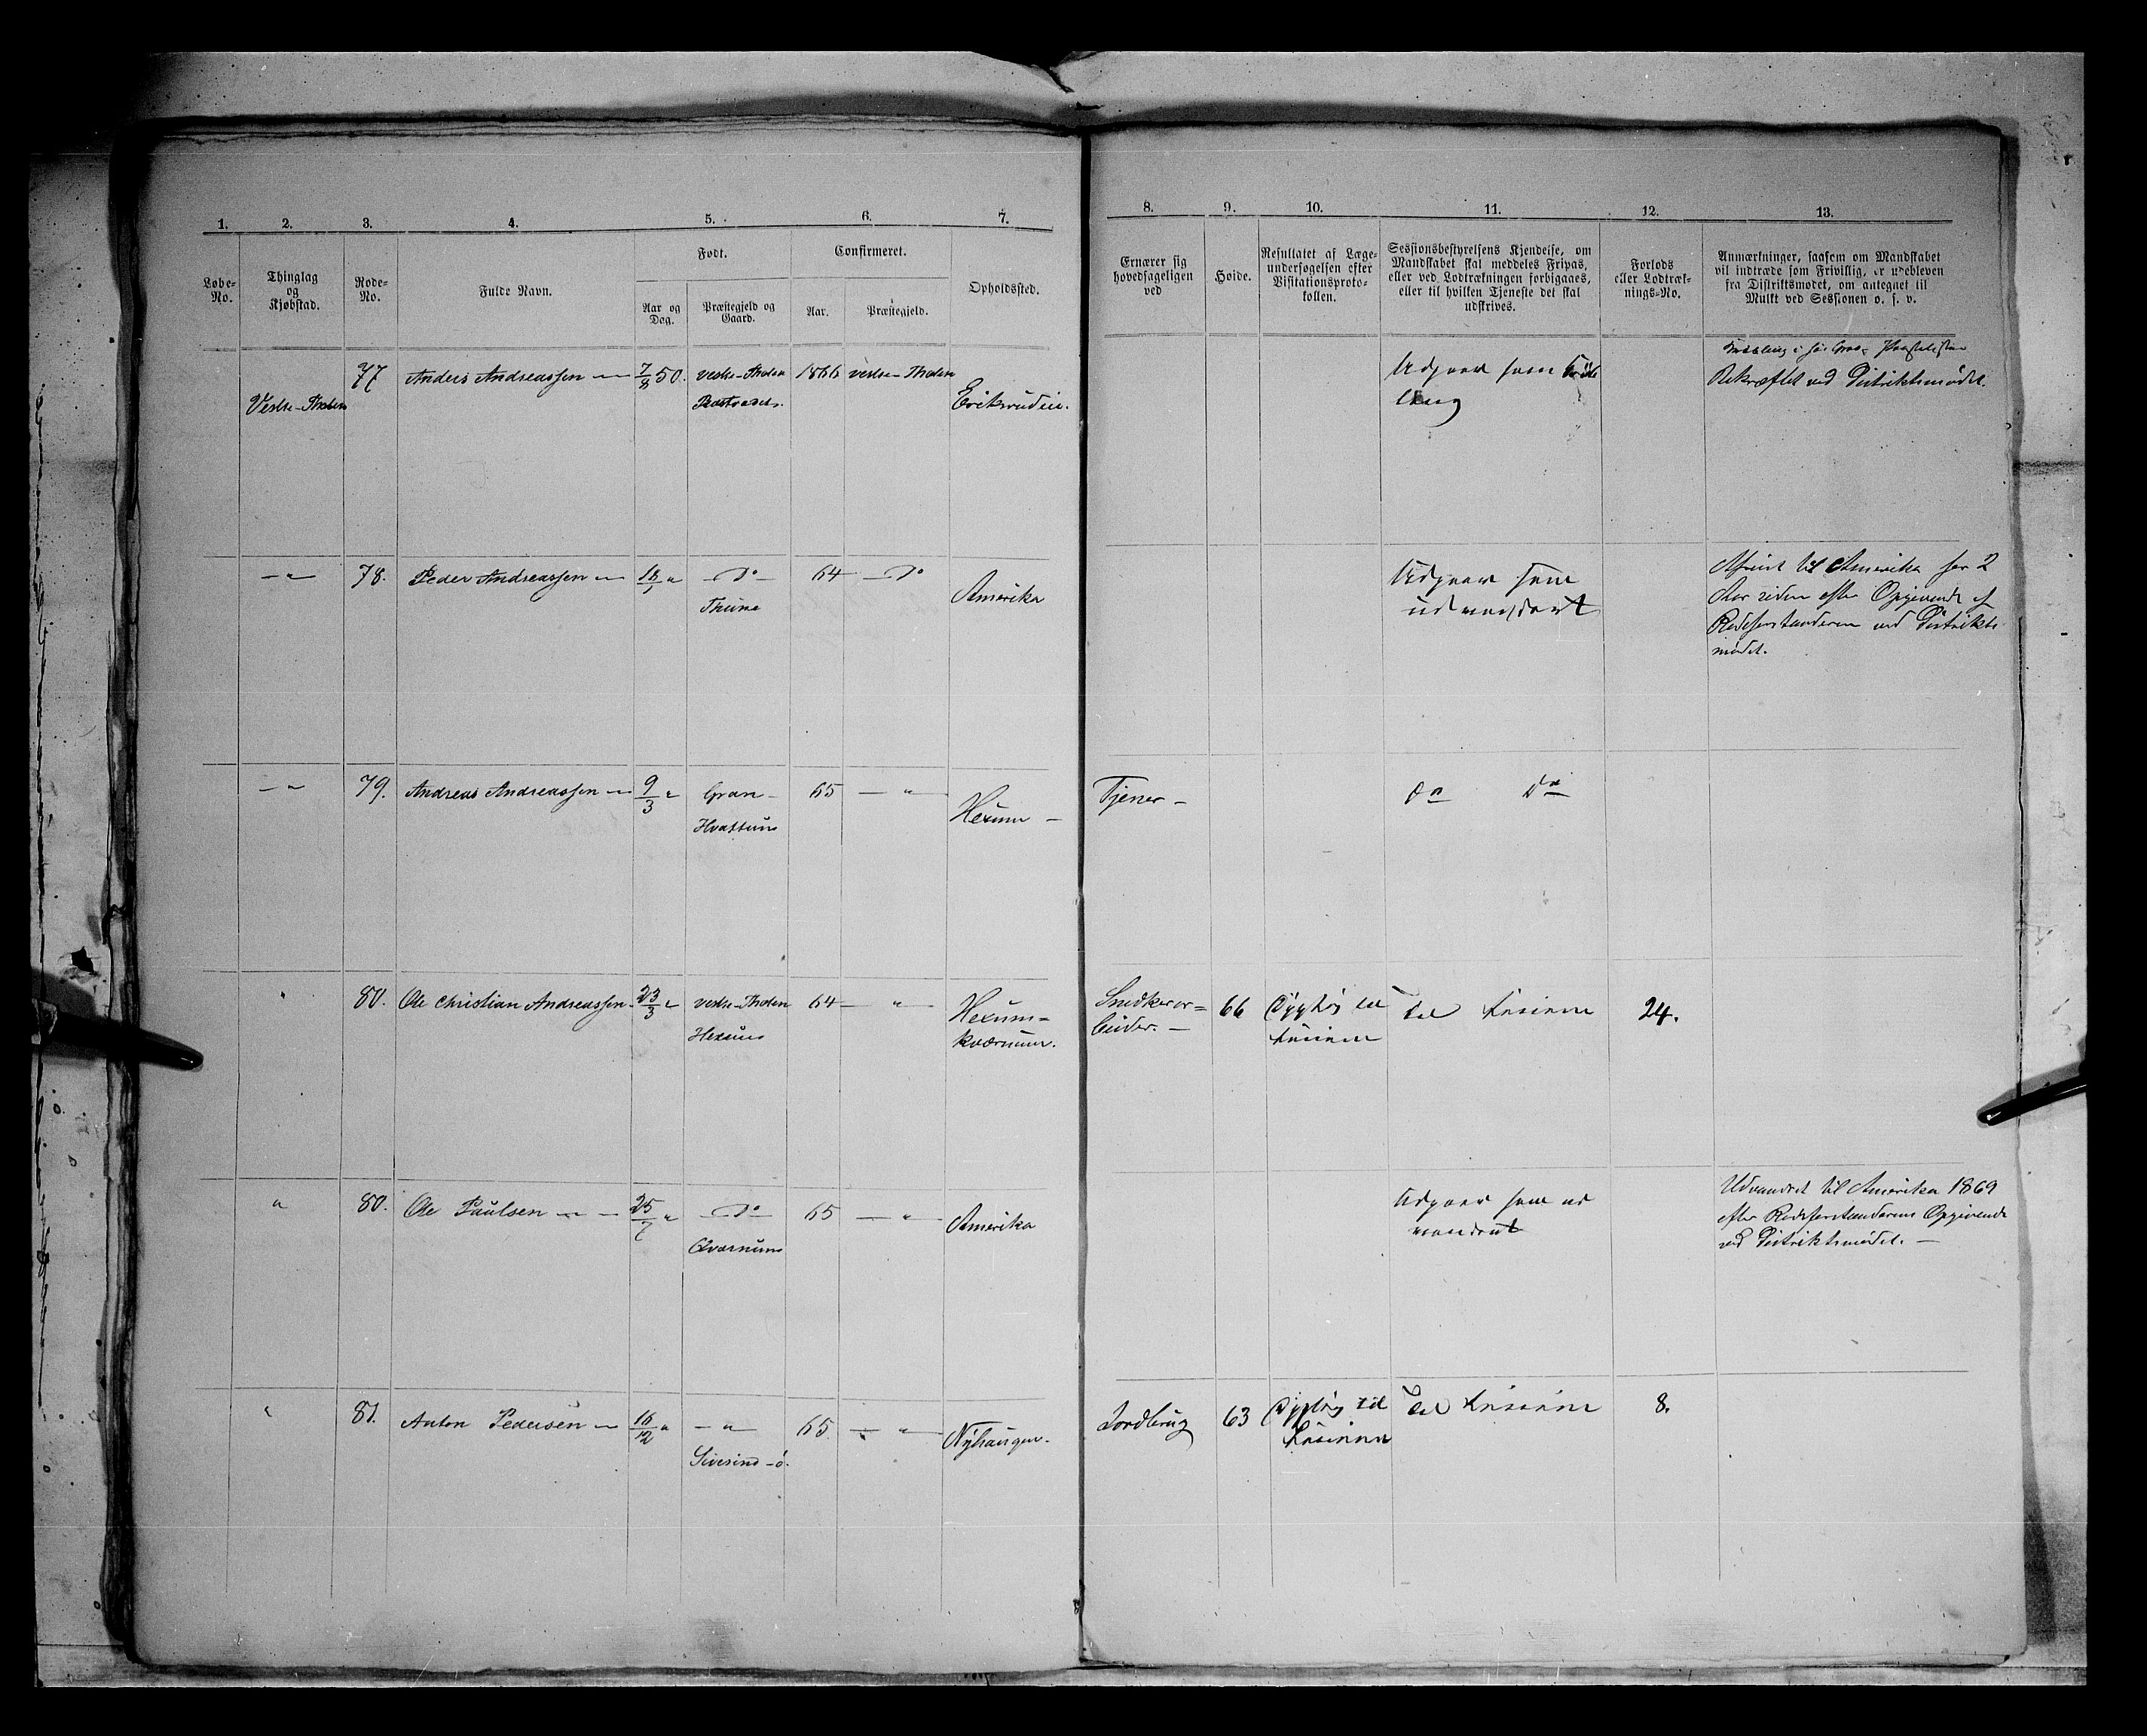 1. 2. 3. 4. 5. 6. 7.
Løbe-No.
Thinglag og Kjøbstad.
Rode-No.
Fulde Navn.
Født.
Aar og Dag.
Præstegjeld og Gaard.
Confirmeret.
Aar.
Præstegjeld.
Opholdssted.
8. 9. 10. 11. 12. 13.
Ernærer sig hovedsageligen ved
Høide.
Resultatet af Læge-
undersøgelsen efter
Visitationsproto-
kollen.
Sessionsbestyrelsens Kjendelse, om
Mandskabet skal meddeles Fripas,
eller ved Lodtrækningen forbigaaes,
eller til hvilken Tjeneste det skal
udskrives.
Forlods
eller Lodtræk-
nings-No.
Anmærkninger, saasom om Mandskabet
vil indtræde som Frivillig, er udebleven
fra Distriktsmødet, om antegnet til
Mulkt ved Sessionen o. s. v.
Vestre-Thoten
77 Anders Andreassen — 7/8 50. vestre-Thoten 1866 vestre-Thoten
Eriksrudeie.
Udgaar som
Bekræftet ved Distriktsmødet.
—"— 78. Peder Andreassen — 18/1 " — Do — 64 — Do
Thune
Amerika
Udgaar som
udvandret
Afreist til Amerika for 2
Aar siden efter Opgivende af
Rodeforstanderen ved Distrikts
mødet.
—"— 79. Andreas Andreassen — 9/3 " Gran - 65 — " —
Hvattum
Hexum —
Tjener —
do do
" 80. Ole Christian Andreassen 23/3 " vestre-Thoten 64 — " —
Hexum
Hexum-
kværnum.
Snedkerar-
beider. —
66
Dygtig til
Linien
Til Linien
24.
" 80. Ole Paulsen — — 25/7 " — Do — 65 — " —
Kværnum
Amerika
Udgaar som ud
vandret
Udvandret til Amerika 1869
efter Rodeforstanderens Opgivende
ved Distriktsmødet. —
" 81. Anton Pedersen — 16/12 " — " — 65. — " —
Sivesind - ø.
Nyhaugen.
Jordbrug
63
Dygtig til
Linien
Til Linien
8.